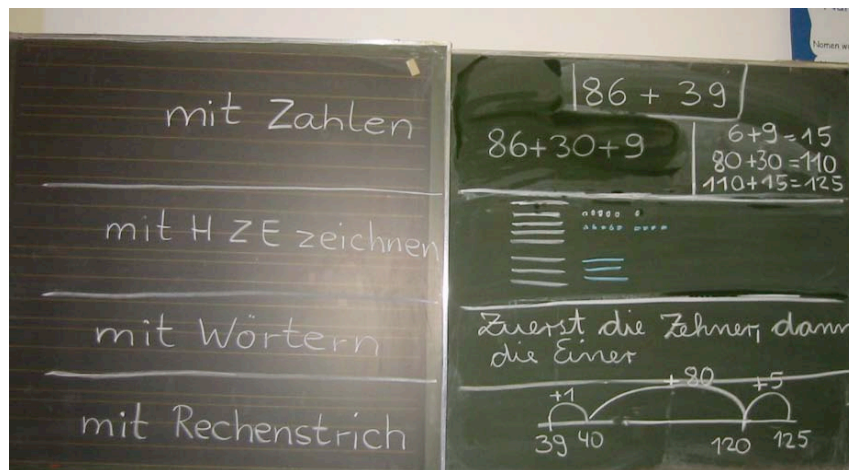 mit Zahlen
mit H Z E zeichnen
mit Wörtern
mit Rechenstrich
Nomen
86 + 39
86+30+9
6+9=15
80+30=110
110+15=125
Zuerst die Zehner, dann
die Einer
+1 +80 +5
39 40 120 125